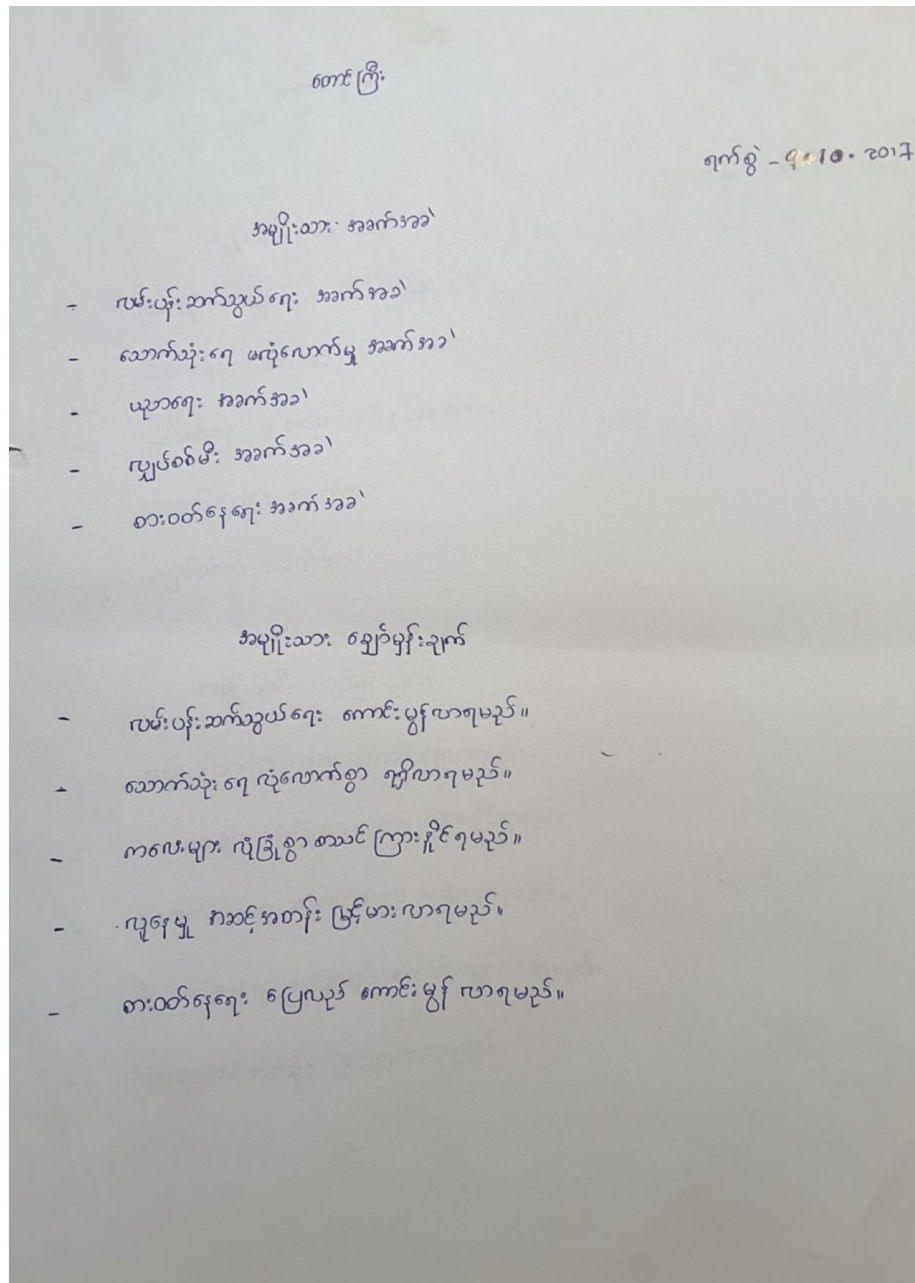 တောင်ကြီး
ရက်စွဲ - 9.10.2017
အမျိုးသား အခက်အခဲ
- လမ်းပန်းဆက်သွယ်ရေး အခက်အခဲ
- သောက်သုံးရေ မလုံလောက်မှု အခက်အခဲ
- ပညာရေး အခက်အခဲ
- လျှပ်စစ်မီး အခက်အခဲ
- စားဝတ်နေရေး အခက်အခဲ
အမျိုးသား မျှော်မှန်းချက်
- လမ်းပန်းဆက်သွယ်ရေး ကောင်းမွန်လာရမည်။
- သောက်သုံးရေ လုံလောက်စွာ ရရှိလာရမည်။
- ကလေးများ လုံခြုံစွာ စာသင်ကြားနိုင်ရမည်။
- လူနေမှု အဆင့်အတန်း မြင့်မားလာရမည်။
- စားဝတ်နေရေး ပြေလည် ကောင်းမွန်လာရမည်။